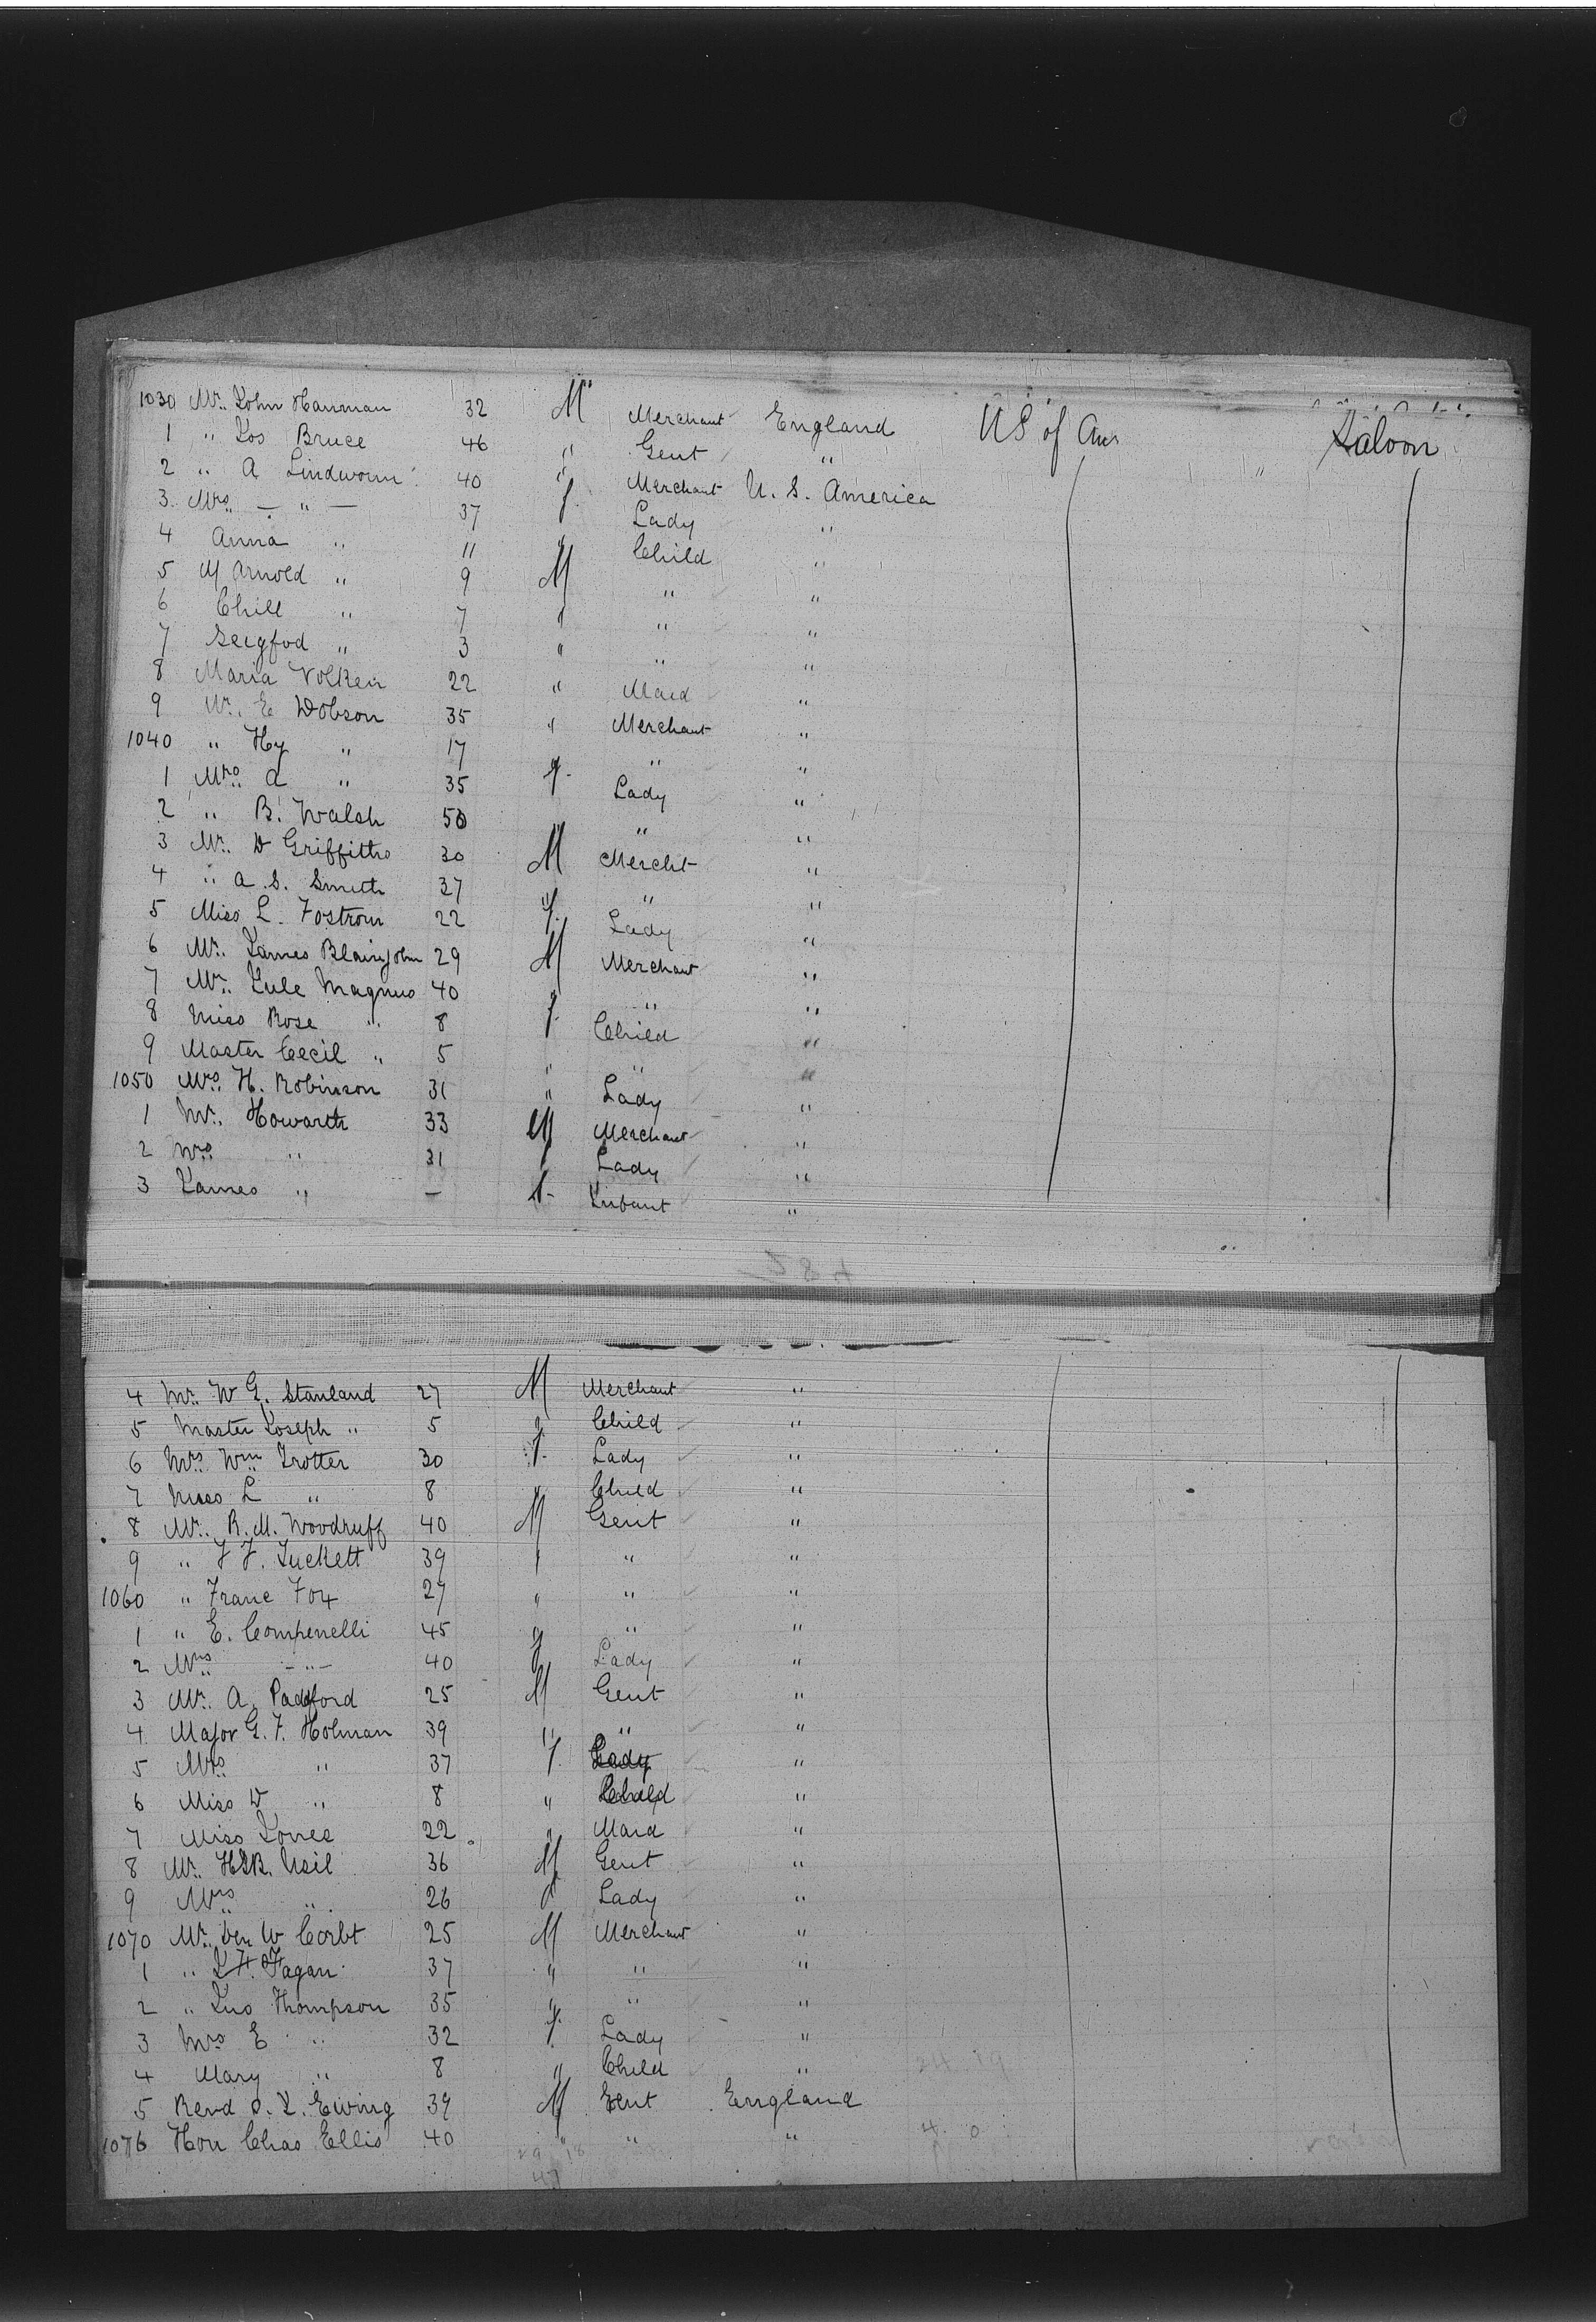 1030 Mr. John Hanman 32 M Merchant England US of Am Saloon
1 " Jos Bruce 46 " Gent "
2 " A Lindworm 40 " Merchant U. S. America
3 Mrs — " — 37 f. Lady "
4 Anna " 11 " Child "
5 M Arnold " 9 M " "
6 Chill " 7 " " "
7 Seigfod " 3 " " "
8 Maria Volken 22 " Maid "
9 Mr. E Dobson 35 " Merchant "
1040 " Hy " 17 " " "
1 Mrs. A " 35 f. Lady "
2 " B. Walsh 50 " "
3 Mr. D Griffiths 30 M Mercht "
4 " A. S. Smith 37 " " "
5 Miss L. Fostrom 22 f. Lady "
6 Mr. James Blainjohn 29 M Merchant "
7 Mr. Jule Magnus 40 " " "
8 Miss Rose " 8 f. Child "
9 Master Cecil " 5 " " "
1050 Mrs. H. Robinson 31 " Lady "
1 Mr. Howarth 33 M Merchant "
2 Mrs " 31 f Lady "
3 James " — Infant "
484
4 Mr. W G. Stanland 27 M Merchant "
5 Master Joseph " 5 " Child "
6 Mrs. Wm Trotter 30 f. Lady "
7 Miss L " 8 " Child "
8 Mr. R. M. Woodruff 40 M Gent "
9 " F F. Tuckett 39 " " "
1060 " Franc Fox 27 " " "
1 " E. Compenelli 45 " " "
2 Mrs. — " — 40 f Lady "
3 Mr. A. Padgford 25 M Gent "
4 Major G. F. Holman 39 " " "
5 Mrs " 37 f. Lady "
6 Miss D " 8 " Child "
7 Miss Jones 22 " Maid "
8 Mr. H&R. Neil 36 M Gent "
9 Mrs. " 26 f Lady "
1070 Mr. Ben W Corbt 25 M Merchant "
1 " J H. Fagan 37 " " "
2 " Jno Thompson 35 " " "
3 Mrs E " 32 f. Lady "
4 Mary " 8 " Child "
5 Revd S. J. Ewing 39 M Gent England
1076 Hon Chas Ellis 40 " " "